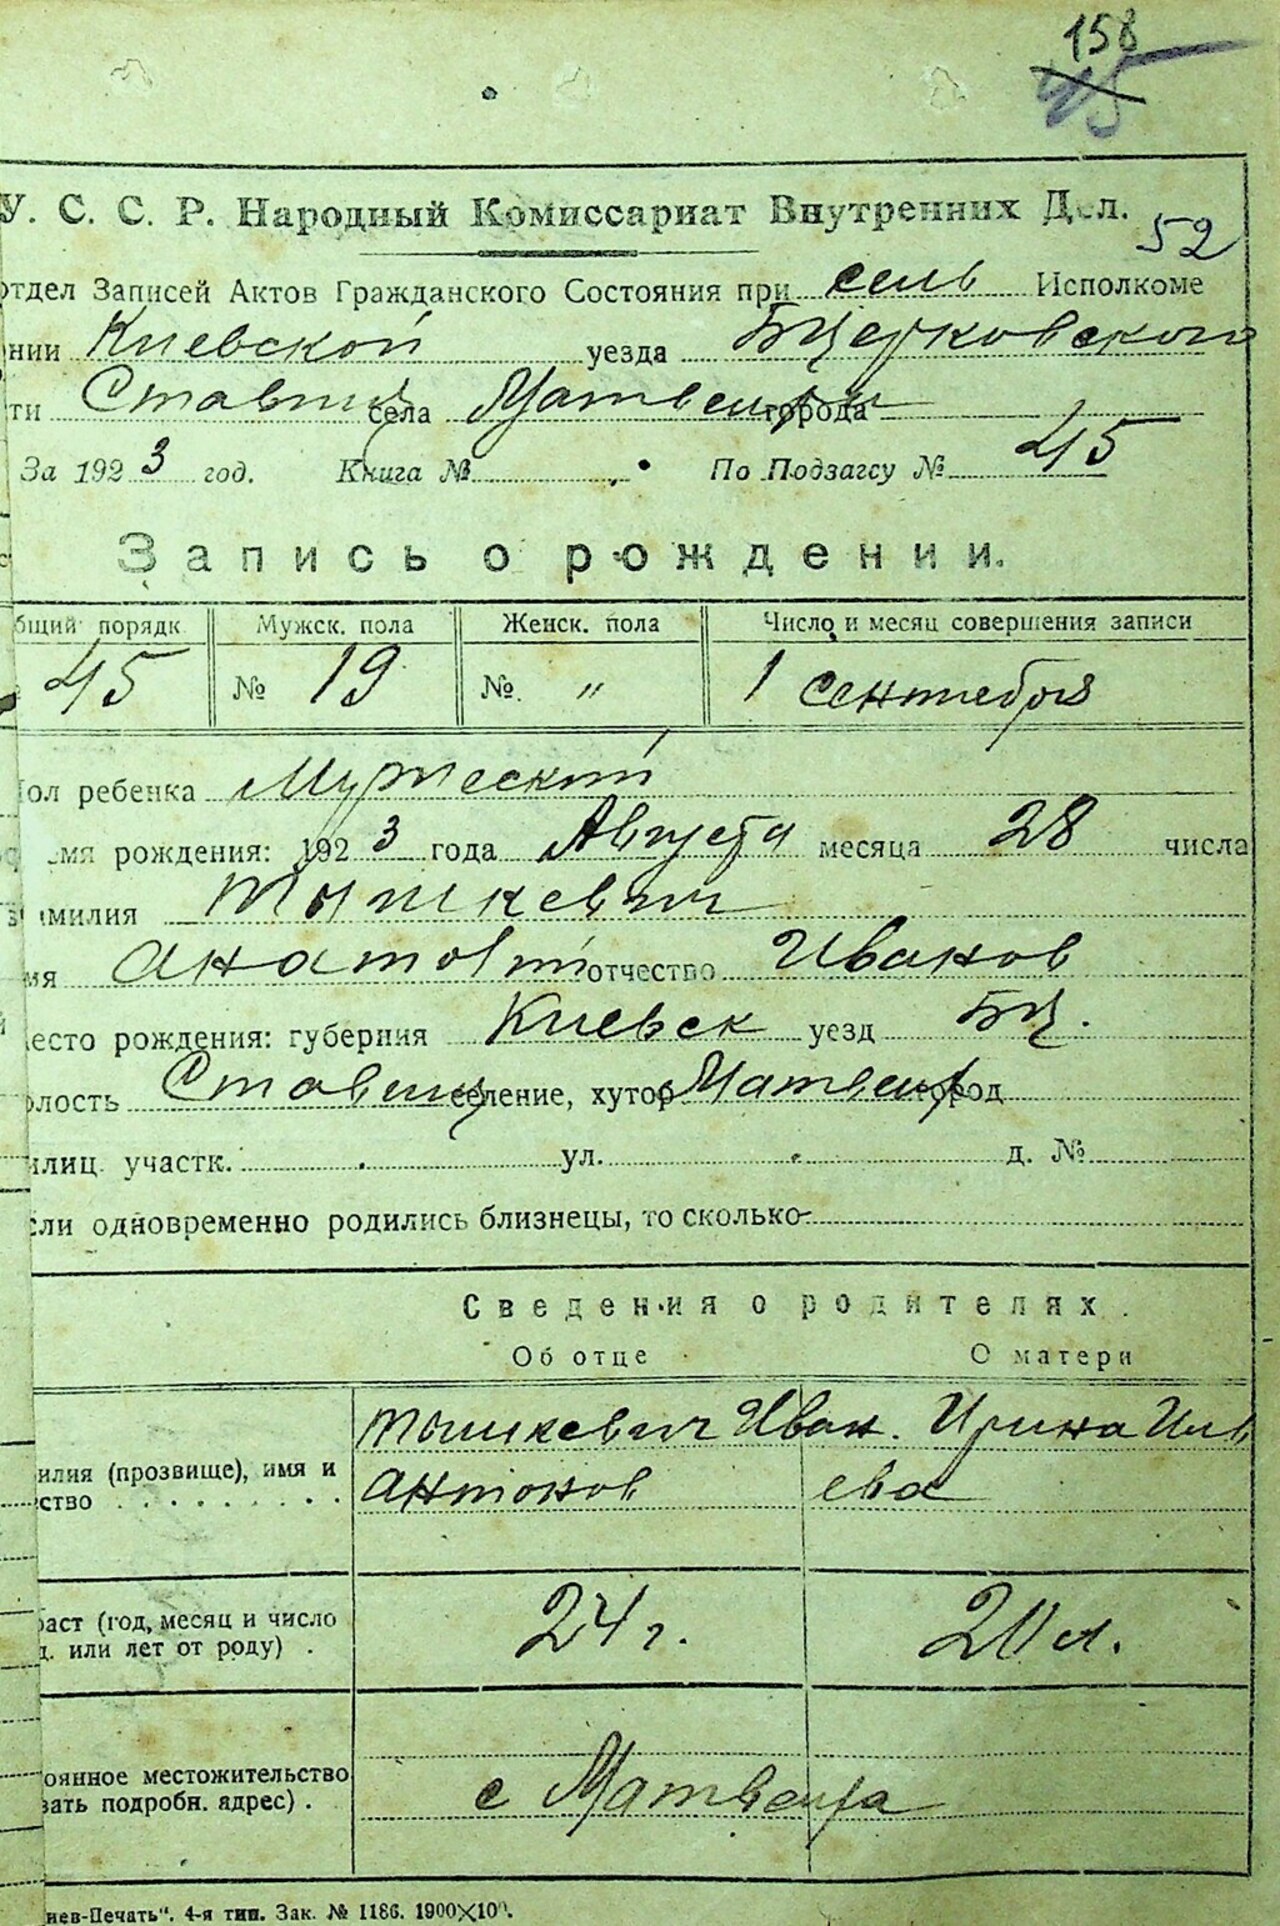 158
45
У. С. С. Р. Народный Комиссариат Внутренних Дел.
52
отдел Записей Актов Гражданского Состояния при сель Исполкоме
нии Киевской уезда БЦерковского
ти Ставищ села Матвеиха города
За 1923 год. Книга № По Подзагсу № 45
Запись о рождении.
бщий порядк Мужск. пола Женск. пола Число и месяц совершения записи
45 № 19 № " 1 Сентября
Пол ребенка Мужеский
емя рождения: 1923 года Августа месяца 28 числа
амилия Тышкевич
мя Анатолий отчество Иванов
есто рождения: губерния Киевск уезд БЦ.
олость Ставищ селение, хутор Матвеих город
илиц. участк. ул. д. №
сли одновременно родились близнецы, то сколько
Сведения о родителях.
Об отце О матери
илия (прозвище), имя и
ство
Тышкевич Иван. Ирина Иль
Антонов ева
раст (год, месяц и число
д. или лет от роду) . 24 г. 20 л.
оянное местожительство
зать подробн. адрес) . с Матвеиха
иев-Печать". 4-я тип. Зак. № 1186. 1900×100.